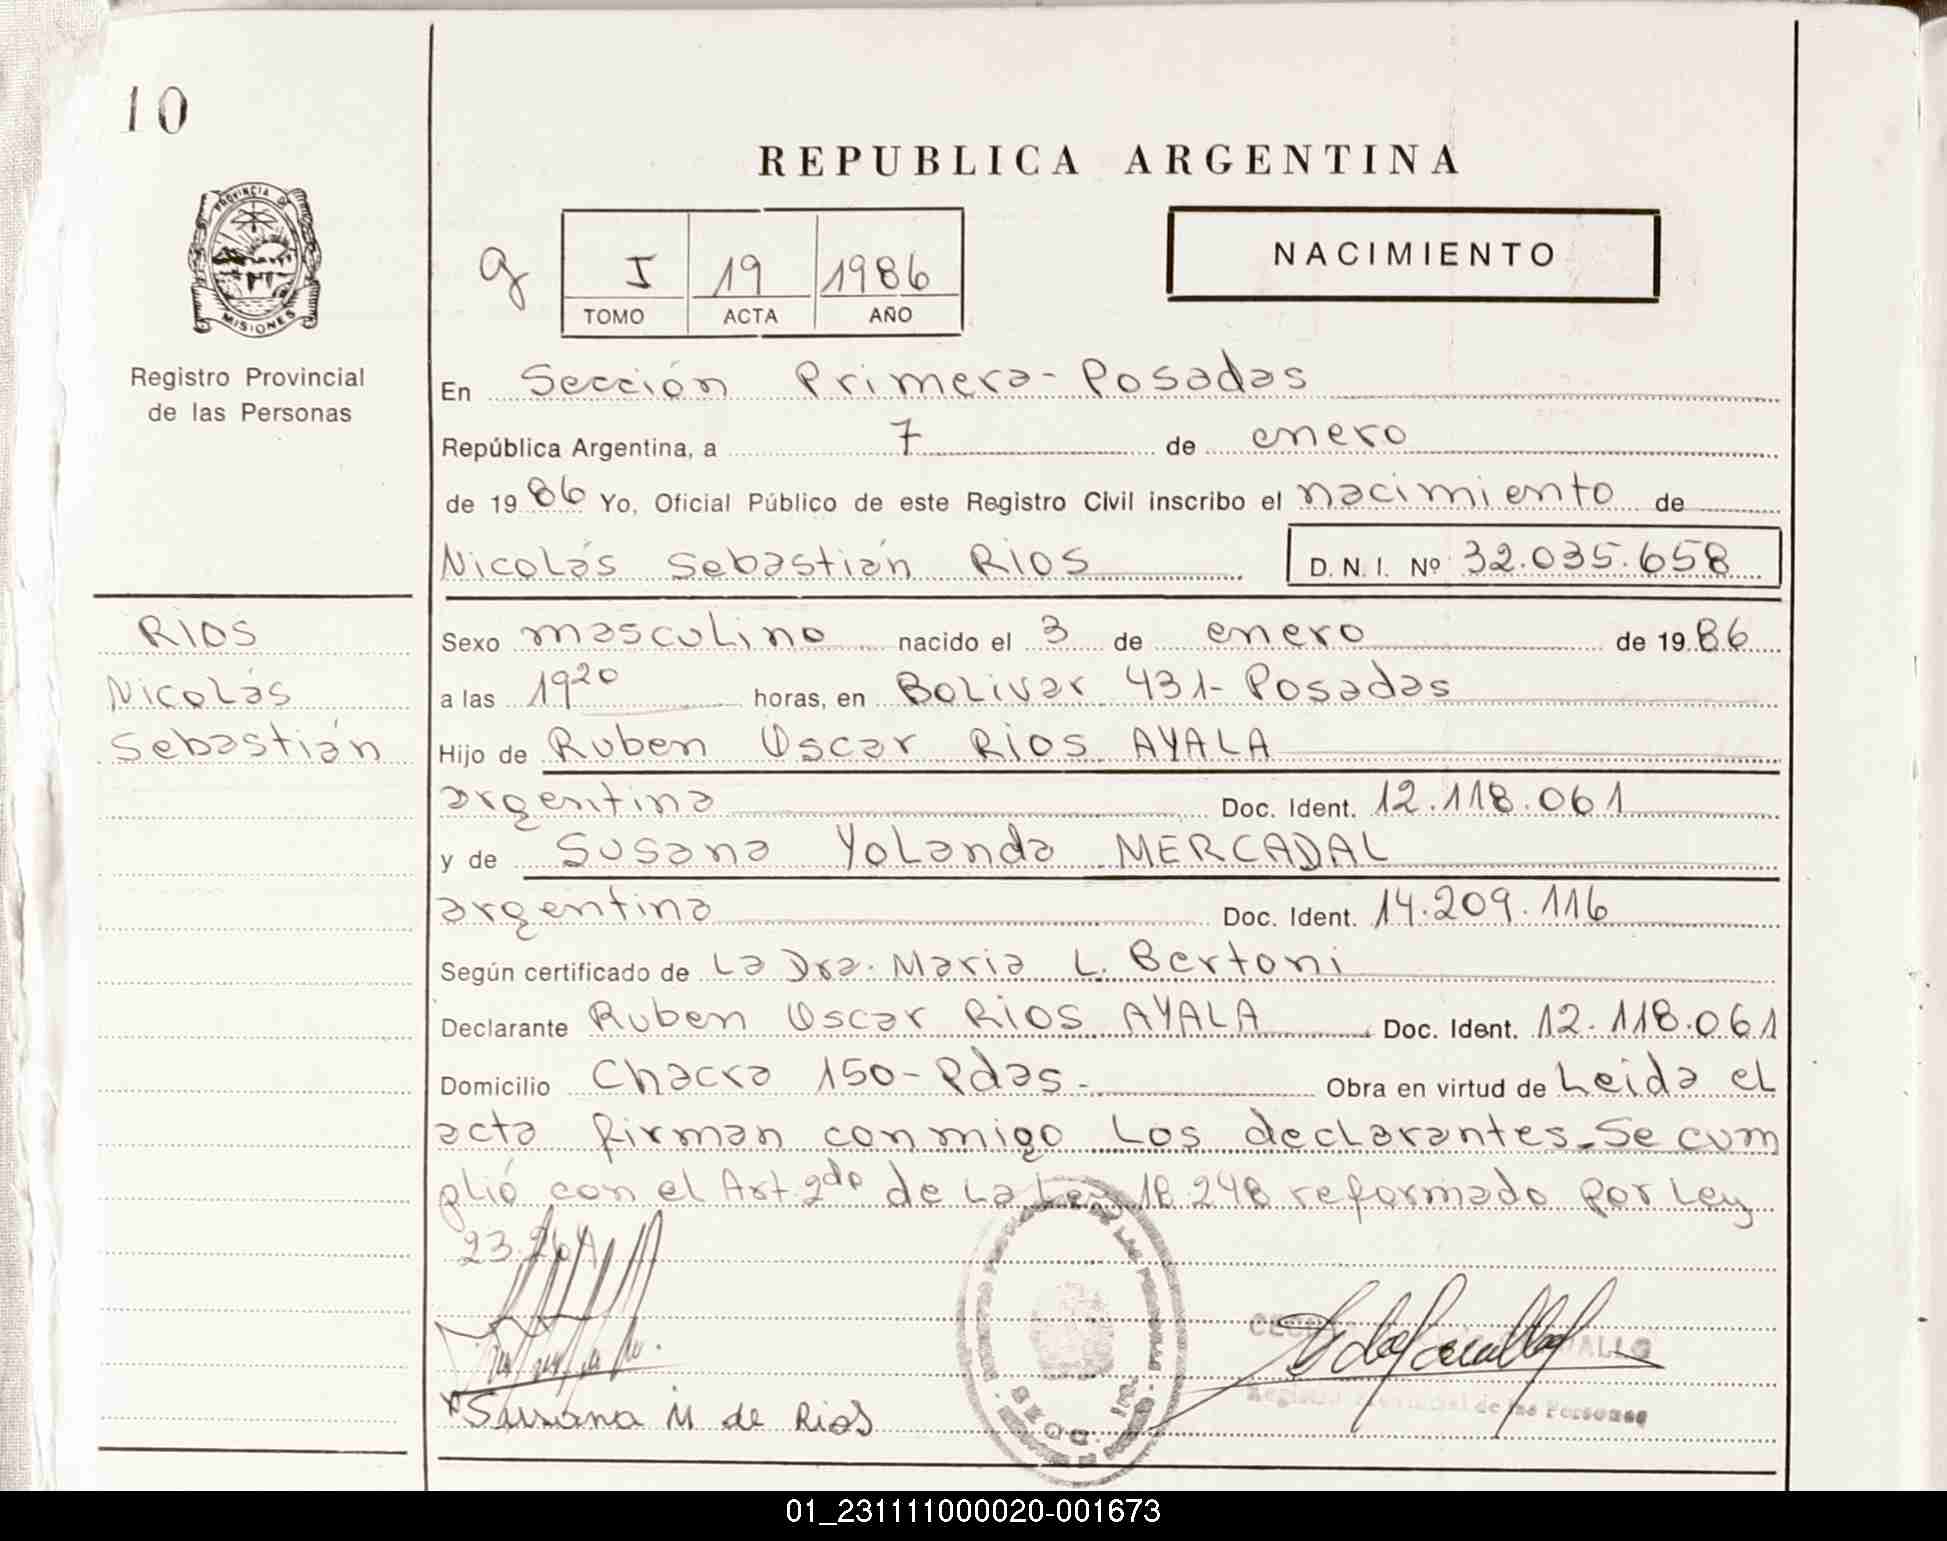 10
REPUBLICA ARGENTINA
PROVINCIA DE
MISIONES
Registro Provincial
de las Personas
g I 19 1986
TOMO ACTA AÑO
NACIMIENTO
En Sección Primera - Posadas
República Argentina, a 7 de enero
de 1986 Yo, Oficial Público de este Registro Civil inscribo el nacimiento de
Nicolás Sebastián RIOS D. N. I. Nº 32.035.658
RIOS
Nicolás
Sebastián
Sexo masculino nacido el 3 de enero de 1986
a las 19 20 horas, en Bolivar 431 - Posadas
Hijo de Ruben Oscar RIOS AYALA
argentina Doc. Ident. 12.118.061
y de Susana Yolanda MERCADAL
argentina Doc. Ident. 14.209.116
Según certificado de La Dra. Maria L. Bertoni
Declarante Ruben Oscar RIOS AYALA Doc. Ident. 12.118.061
Domicilio Chacra 150 - Pdas. - Obra en virtud de Leida el
acta firman conmigo Los declarantes. Se cum
plió con el Art. 2do de La Ley 18.248 reformado por Ley
23.264
Susana M de Rios
SECC. 1RA.
Registro Provincial de las Personas
01_231111000020-001673